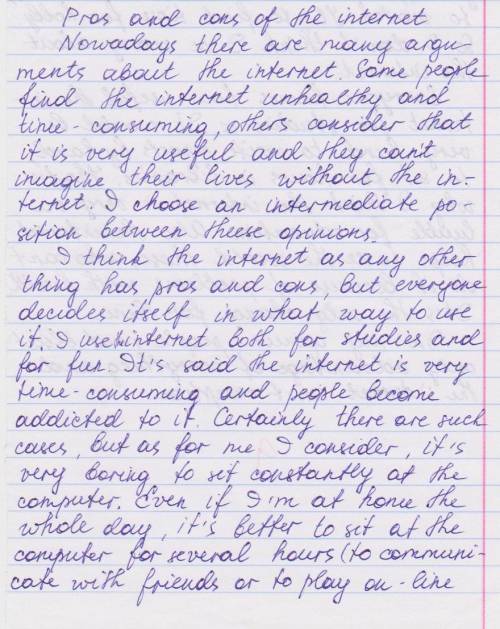 Pros and cons of the internet
Nowadays there are many argu-
ments about the internet. Some people
find the internet unhealthy and
time-consuming, others consider that
it is very useful and they can't
imagine their lives without the in-
ternet. I choose an intermediate po-
sition between theese opinions.
I think the internet as any other
thing has pros and cons, but everyone
decides itself in what way to use
it. I use internet both for studies and
for fun. It's said the internet is very
time-consuming and people become
addicted to it. Certainly there are such
cases, but as for me I consider, it's
very boring to sit constantly at the
computer. Even, if I'm at home the
whole day, it's better to sit at the
computer for several hours (to communi-
cate with friends or to play on-line